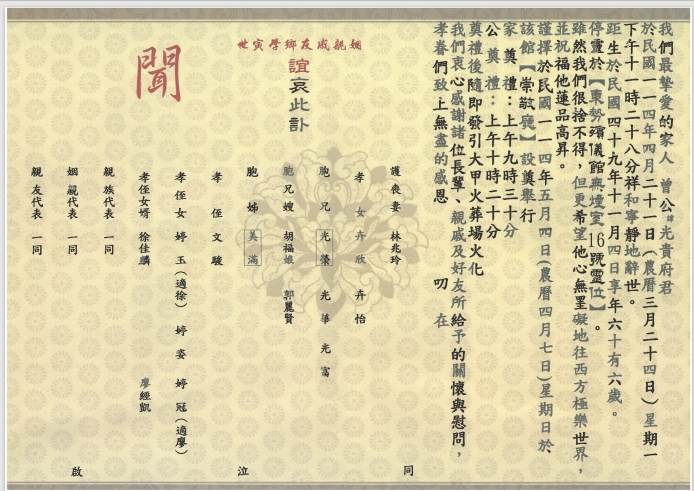 我們最摯愛的家人 曾公諱光貴府君
於民國一一四年四月二十一日(農曆三月二十四日)星期一
下午十一時二十八分祥和寧靜地辭世。
距生於民國四十九年十一月四日享年六十有六歲。
停靈於【東勢殯儀館無煙室16號靈位】。
雖然我們很捨不得,但更希望他心無罣礙地往西方極樂世界,
並祝福他蓮品高昇。
謹擇於民國一一四年五月四日(農曆四月七日)星期日於、
該館【崇敬廳】設奠舉行
家奠禮:上午九時三十分
公奠禮:上午十時二十分
奠禮後隨即發引大甲火葬場火化
我們衷心感謝諸位長輩、親戚及好友所給予的關懷與慰問,
孝眷們致上無盡的感恩 叨在
姻親戚友鄉學寅世
誼哀此訃
聞
護喪妻 林兆玲
孝女 卉欣 卉怡
胞兄 光榮 光華 光富
胞兄嫂 胡福娘 郭麗賢
胞姊 美滿
孝侄 文駿
孝侄女 婷玉(適徐) 婷姿 婷冠(適廖)
孝侄女婿 徐佳麟 廖經凱
親族代表 一同
姻親代表 一同
親友代表 一同
同泣啟